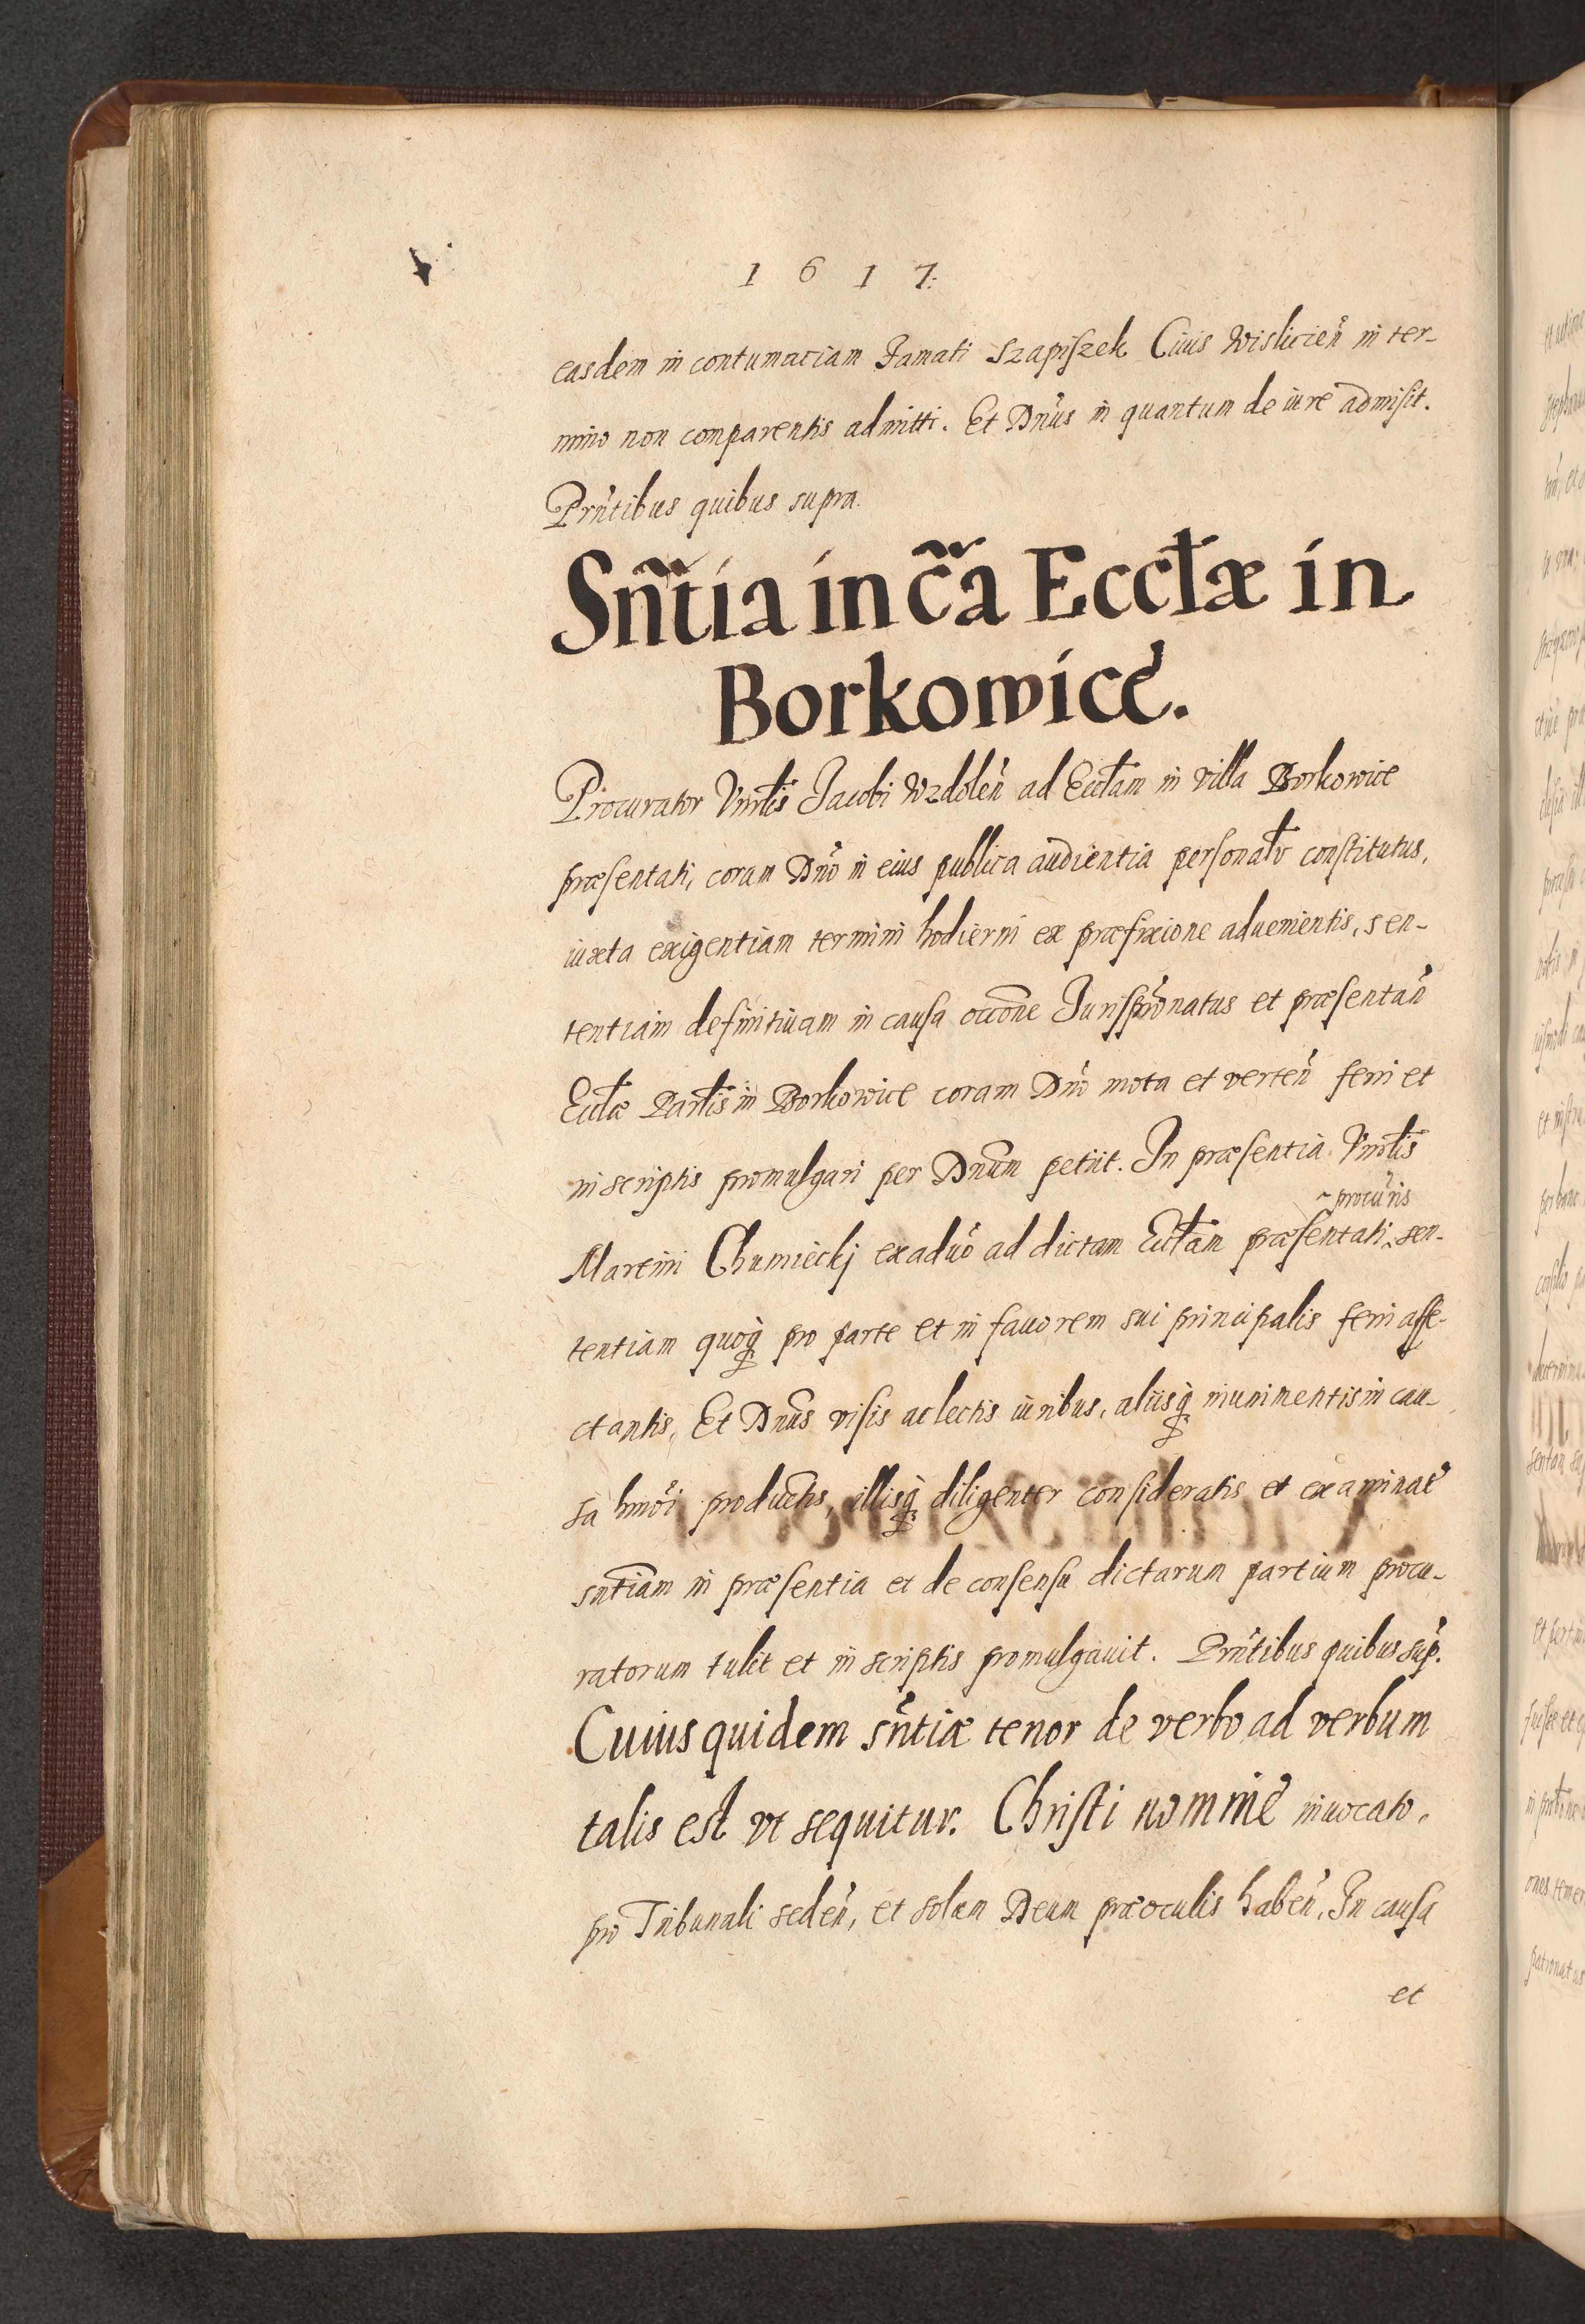 1 6 1 7.
easdem in contumaciam Famati Szapiszek Ciuis Wislicień in ter-
mino non comparentis admitti. Et Dnus in quantum de iure admisit.
Prntibus quibus supra.
Sñtia in cãa Ecctæ in
Borkowice.
Procurator Vnrlis Jacobi Wzdoleñ ad Ecctam in villa Borkowice
præsentati, coram Dño in eius publica audientia personalr constitutus,
iuxta exigentiam termini hodierni ex præfixione aduenientis, sen-
tentiam definitiuam in causa occõne Jurispronatus et præsentañ
Ecctæ Parlis in Borkowice coram Dño mota et verteñ ferri et
in scriptis promulgari per Dnum petiit. In præsentia Vnrlis
procuris
Martini Chumieckj exaduo ad dictam Ecctam præsentati, sen-
tentiam quoq; pro parte et in fauorem sui principalis ferri affe-
ctantis, Et Dnus visis ac lectis iuribus, aliisq; munimentis in cau-
sa hmõi productis, illisq; diligenter consideratis et examinat
sntiam in præsentia et de consensu dictarum partium procu-
ratorum tulit et in scriptis promulgauit. Prntibus quibus sup.
Cuius quidem sñtiæ tenor de verbo ad verbum
talis est vt sequitur. Christi nomine inuocato,
pro Tribunali sedeñ, et solum Deum præ oculis habeñ, In causa
et